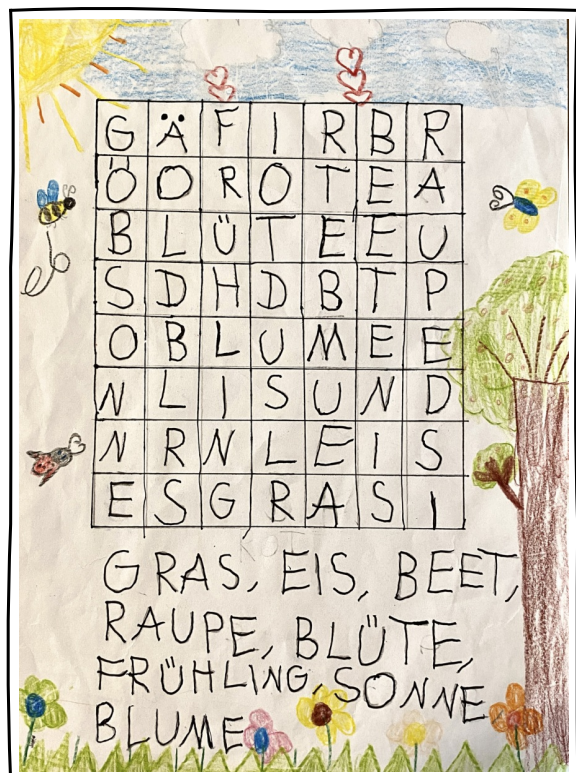 G Ä F I R B R
Ö O R O T E A
B L Ü T E E U
S D H D B T P
O B L U M E E
N L I S U N D
N R N L E I S
E S G R A S I
GRAS, EIS, BEET,
RAUPE, BLÜTE,
FRÜHLING, SONNE
BLUME